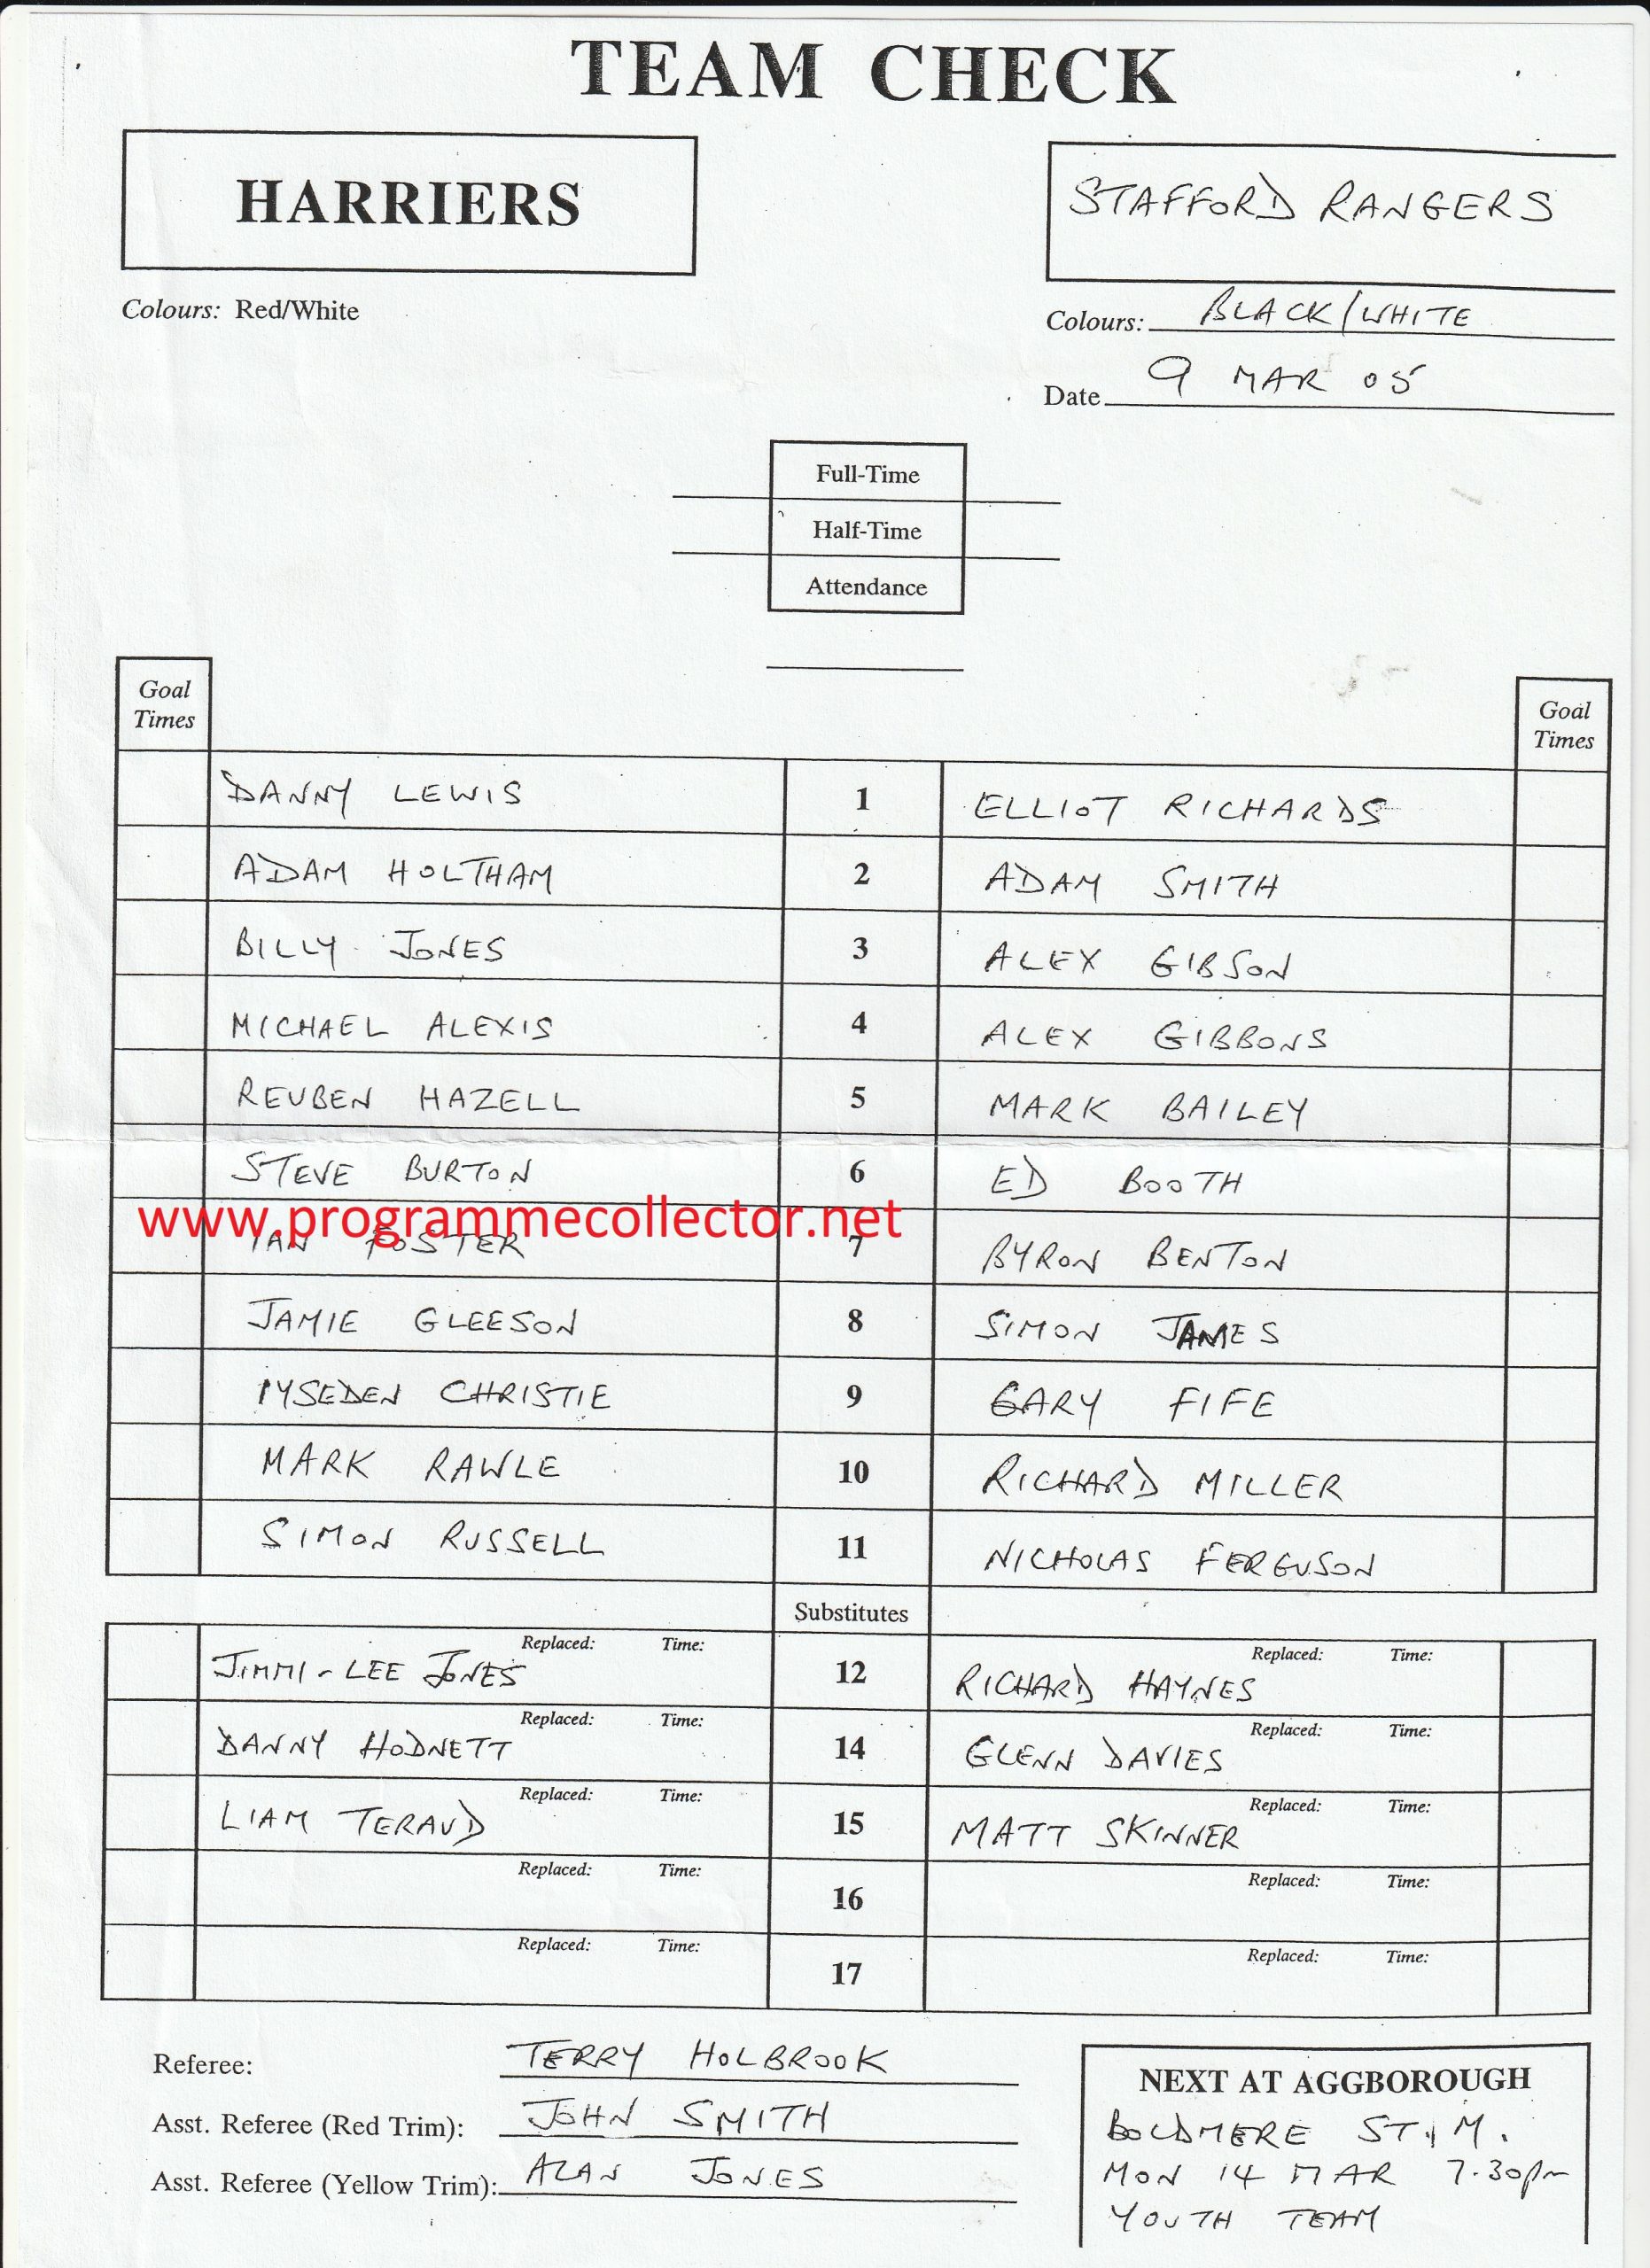 TEAM CHECK
HARRIERS
STAFFORD RANGERS
Colours: Red/White
Colours: BLACK/WHITE
Date 9 MAR 05
Full-Time
Half-Time
Attendance
Goal Times
Goal Times
DANNY LEWIS 1 ELLIOT RICHARDS
ADAM HOLTHAM 2 ADAM SMITH
BILLY JONES 3 ALEX GIBSON
MICHAEL ALEXIS 4 ALEX GIBBONS
REUBEN HAZELL 5 MARK BAILEY
STEVE BURTON 6 ED BOOTH
www.programmecollector.net
IAN FOSTER 7 BYRON BENTON
JAMIE GLEESON 8 SIMON JAMES
IYSEDEN CHRISTIE 9 GARY FIFE
MARK RAWLE 10 RICHARD MILLER
SIMON RUSSELL 11 NICHOLAS FERGUSON
Substitutes
Replaced: Time: Replaced: Time:
JIMMI-LEE JONES 12 RICHARD HAYNES
Replaced: Time: Replaced: Time:
DANNY HODNETT 14 GLENN DAVIES
Replaced: Time: Replaced: Time:
LIAM TERAUD 15 MATT SKINNER
Replaced: Time: Replaced: Time:
16
Replaced: Time: Replaced: Time:
17
Referee: TERRY HOLBROOK
Asst. Referee (Red Trim): JOHN SMITH
Asst. Referee (Yellow Trim): ALAN JONES
NEXT AT AGGBOROUGH
BOLDMERE ST. M.
MON 14 MAR 7.30pm
YOUTH TEAM